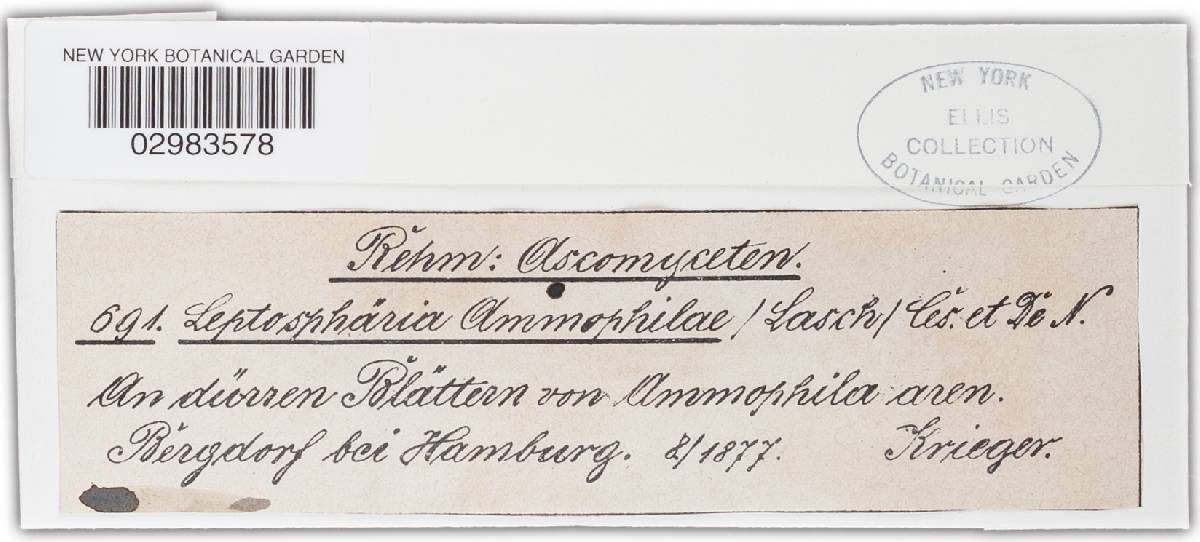 NEW YORK BOTANICAL GARDEN
02983578
NEW YORK
ELLIS
COLLECTION
BOTANICAL GARDEN
Rehm: Ascomyceten.
691. Leptosphäria Ammophilae /Lasch/ Ces. et De N.
An dürren Blättern von Ammophila aren.
Bergdorf bei Hamburg. 8/1877. Krieger.